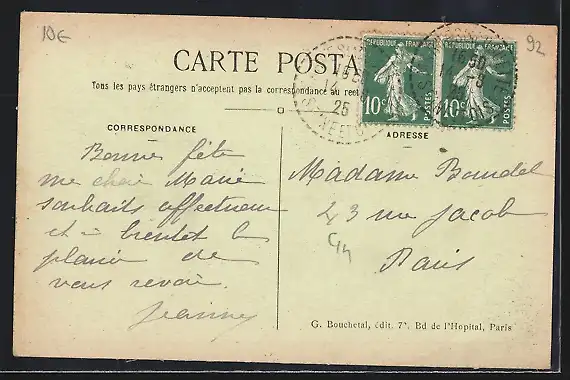 10€
92
CARTE POSTA
Tous les pays étrangers n'acceptent pas la correspondance au
RÉPUBLIQUE FRANÇAISE
10c
POSTES
RÉPUBLIQUE FRANÇAISE
10c
POSTES
25
CORRESPONDANCE
ADRESSE
Bonne fête
ma chère Marie
souhaits affectueux
et à bientôt le
plaisir de
vous revoir.
Jeanny
Madame Boudel
43 rue Jacob
Paris
G. Bouchetal, édit. 7, Bd de l'Hopital, Paris